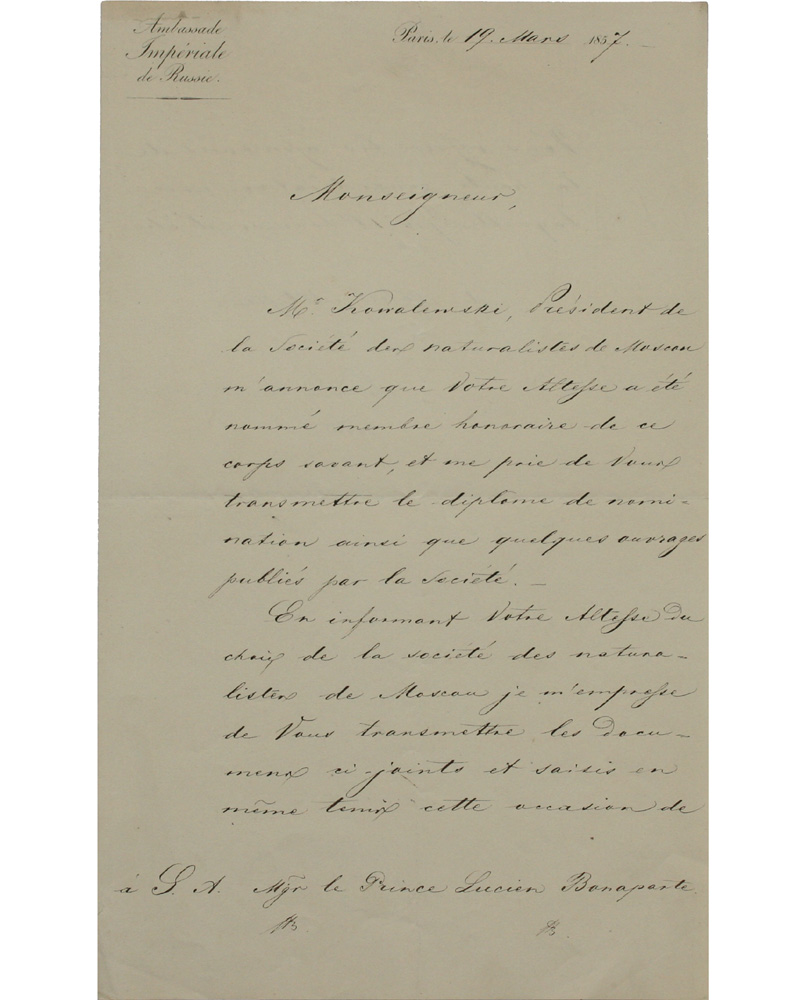 Ambassade
Impériale
de Russie.
Paris, le 19. Mars 1857.
Monseigneur,
Mr. Kowalewski, Président de
la Société des naturalistes de Moscou
m'annonce que Votre Altesse a été
nommé membre honoraire de ce
corps savant, et me prie de Vous
transmettre le diplome de nomi-
nation ainsi que quelques ouvrages
publiés par la Société. _
En informant Votre Altesse du
choix de la société des natura-
listes de Moscou je m'empresse
de Vous transmettre les docu-
mens ci-joints et saisis en
même tems cette occasion de
à S. A. Mgr le Prince Lucien Bonaparte.